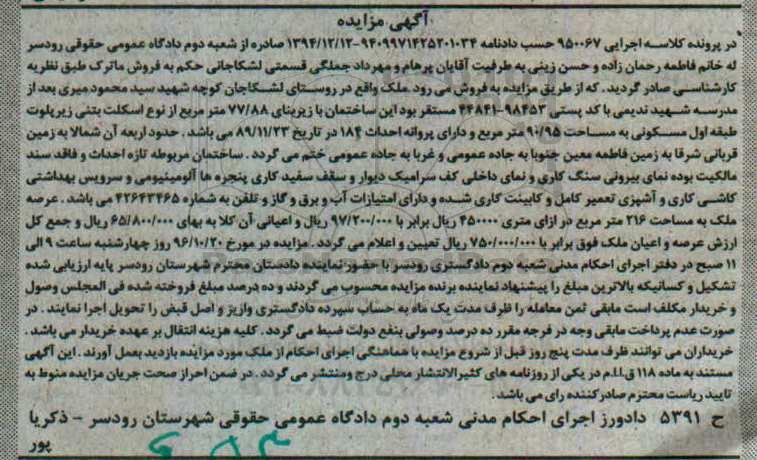 آگهی مزایده
در پرونده کلاسه اجرایی ۹۵۰۰۶۷ حسب دادنامه ۹۴۰۹۹۷۱۴۲۵۲۰۱۰۳۴-۱۳۹۴/۱۲/۱۲ صادره از شعبه دوم دادگاه عمومی حقوقی رودسر
له خانم فاطمه رحمان زاده و حسن زینی به طرفیت آقایان پرهام و مهرداد جملگی قسمتی لشکاجانی حکم به فروش ماترک طبق نظریه
کارشناسی صادر گردید. که از طریق مزایده به فروش می رود. ملک واقع در روستای لشکاجان کوچه شهید سید محمود میری بعد از
مدرسه شهید ندیمی با کد پستی ۹۸۴۵۳-۴۴۸۴۱ مستقر بود این ساختمان با زیربنای ۷۷/۸۸ متر مربع از نوع اسکلت بتنی زیرپلوت
طبقه اول مسکونی به مساحت ۹۰/۹۵ متر مربع و دارای پروانه احداث ۱۸۴ در تاریخ ۸۹/۱۱/۲۳ می باشد. حدود اربعه آن شمالا به زمین
قربانی شرقا به زمین فاطمه معین جنوبا به جاده عمومی و غربا به جاده عمومی ختم می گردد. ساختمان مربوطه تازه احداث و فاقد سند
مالکیت بوده نمای بیرونی سنگ کاری و نمای داخلی کف سرامیک دیوار و سقف سفید کاری پنجره ها آلومینیومی و سرویس بهداشتی
کاشی کاری و آشپزی تعمیر کامل و کابینت کاری شده و دارای امتیازات آب و برق و گاز و تلفن به شماره ۴۲۶۴۳۴۶۵ می باشد. عرصه
ملک به مساحت ۲۱۶ متر مربع در ازای متری ۴۵۰۰۰۰ ریال برابر با ۹۷/۲۰۰/۰۰۰ ریال و اعیانی آن کلا به بهای ۶۵/۸۰۰/۰۰۰ ریال و جمع کل
ارزش عرصه و اعیان ملک فوق برابر با ۷۵۰/۰۰۰/۰۰۰ ریال تعیین و اعلام می گردد. مزایده در مورخ ۹۶/۱۰/۲۰ روز چهارشنبه ساعت ۹ الی
۱۱ صبح در دفتر اجرای احکام مدنی شعبه دوم دادگستری رودسر با حضور نماینده دادستان محترم شهرستان رودسر پایه ارزیابی شده
تشکیل و کسانیکه بالاترین مبلغ را پیشنهاد نماینده برنده مزایده محسوب می گردند و ده درصد مبلغ فروخته شده فی المجلس وصول
و خریدار مکلف است مابقی ثمن معامله را ظرف مدت یک ماه به حساب سپرده دادگستری واریز و اصل قبض را تحویل اجرا نمایند. در
صورت عدم پرداخت مابقی وجه در فرجه مقرر ده درصد وصولی بنفع دولت ضبط می گردد. کلیه هزینه انتقال بر عهده خریدار می باشد.
خریداران می توانند ظرف مدت پنج روز قبل از شروع مزایده با هماهنگی اجرای احکام از ملک مورد مزایده بازدید بعمل آورند. این آگهی
مستند به ماده ۱۱۸ ق.ا.ا.م در یکی از روزنامه های کثیرالانتشار محلی درج ومنتشر می گردد. در ضمن احراز صحت جریان مزایده منوط به
تایید ریاست محترم صادر کننده رای می باشد.
ح ۵۳۹۱ دادورز اجرای احکام مدنی شعبه دوم دادگاه عمومی حقوقی شهرستان رودسر - ذکریا
پور